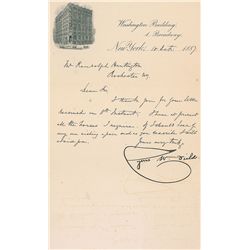 Washington Building,
1 Broadway.
New York, 10 Octr. 1887
Mr Randolph Huntington
Rochester NY
Dear Sir
I thank you for your letter
received on 8th Instant. I have at present
all the horses I require. If I should have
any one wishing a pair such as you describe I will
send you.
Yours very truly,
Cyrus W. Field